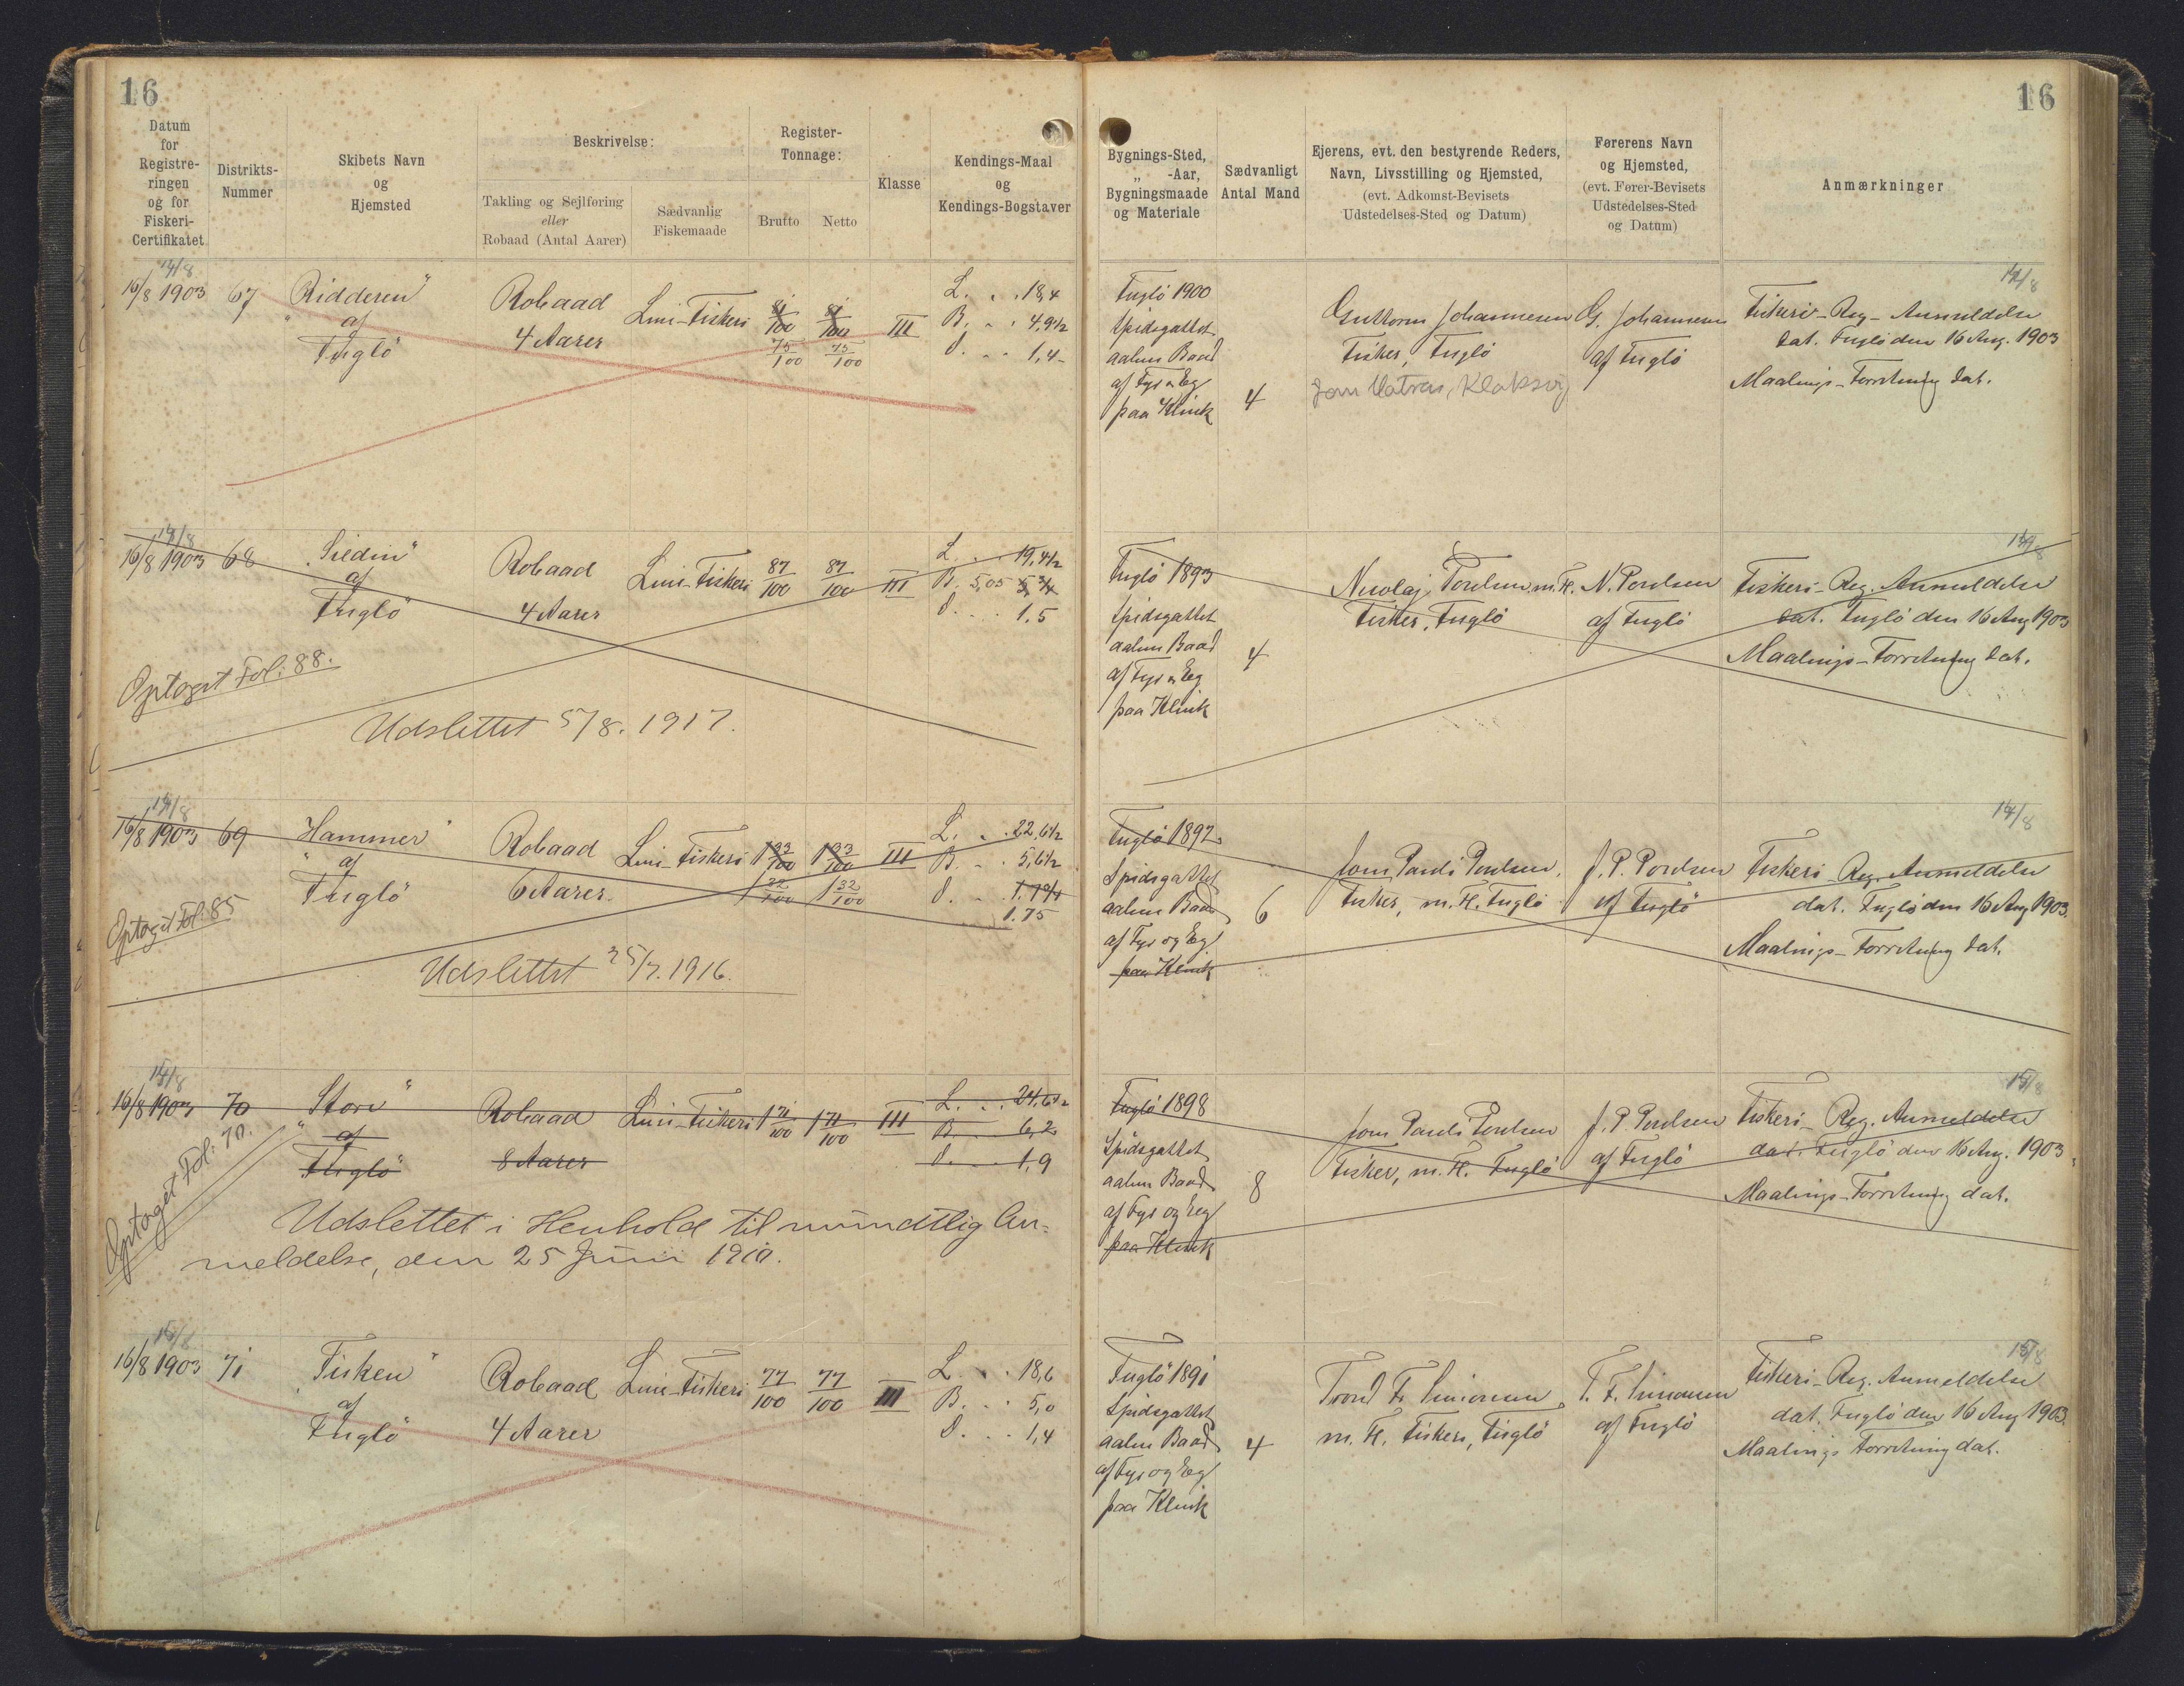 16
16
Datum
for
Registre-
ringen
og for
Fiskeri-
Certifikatet
Distrikts-
Nummer
Skibets Navn
og
Hjemsted
Beskrivelse:
Takling og Sejlføring
eller
Robaad (Antal Aarer)
Sædvanlig
Fiskemaade
Register-
Tonnage:
Brutto
Netto
Klasse
Kendings-Maal
og
Kendings-Bogstaver
Bygnings-Sted,
„ -Aar,
Bygningsmaade
og Materiale
Sædvanligt
Antal Mand
Ejerens, evt. den bestyrende Reders,
Navn, Livsstilling og Hjemsted,
(evt. Adkomst-Bevisets
Udstedelses-Sted og Datum)
Førerens Navn
og Hjemsted,
(evt. Fører-Bevisets
Udstedelses-Sted
og Datum)
Anmærkninger
14/8
16/8 1903 67 „Ridderen"
af
Fuglö
Robaad
4 Aarer
Line-Fiskeri
81/100 81/100
75/100 75/100
III
L. . . 18,4
B. . . 4,9½
D. . . 1,4
Fuglö 1900
Spidsgattet
aaben Baad
af Fyr og Eg
paa Klink
4
Guttorm Johannesen
Fisker, Fuglö
Klaksvig
G. Johannesen
af Fuglö
14/8
Fiskeri-Reg-Anmeldelse
dat. Fuglö den 16 Aug. 1903
Maalings-Forretning dat.
14/8
16/8 1903 68 „Sildin"
af
Fuglö
Robaad
4 Aarer
Line-Fiskeri
87/100 87/100
III
L. . . 19,4½
B. 5,05
D. . . 1,5
Optaget Fol: 88.
Udslettet 5/8. 1917.
Fuglö 1893
Spidsgattet
aaben Baad
af Fyr og Eg
paa Klink
4
Nicolaj Poulsen m. Fl.
Fisker, Fuglö
N. Poulsen
af Fuglö
14/8
Fiskeri-Reg. Anmeldelse
dat. Fuglö den 16 Aug 1903
Maalings-Forretning dat.
14/8
16/8 1903 69 „Hammer"
af
Fuglö
Robaad
6 Aarer.
Line-Fiskeri
1 33/100 1 33/100
1 32/100 1 32/100
III
L. . . 22,6½
B. . . 5,6½
D. . . 1,7¾
1.75
Optaget Fol: 85
Udslettet 25/7. 1916.
Fuglö 1892
Spidsgattet
aaben Baad
af Fyr og Eg
paa Klink
6
Jons Pauli Poulsen,
Fisker, m. Fl. Fuglö
J. P. Poulsen
af Fuglö
14/8
Fiskeri-Reg. Anmeldelse
dat. Fuglö den 16 Aug 1903.
Maalings-Forretning dat.
14/8
16/8 1903 70 „Stori"
af
Fuglö
Robaad
8 Aarer
Line-Fiskeri
1 71/100 1 71/100
III
L. . . 24,6½
B. . . 6,2
D. . . 1,9
Optaget Fol: 70.
Udslettet i Henhold til mundtlig An-
meldelse, den 25 Juni 1910.
Fuglö 1898
Spidsgattet
aaben Baad
af Fyr og Eg
paa Klink
8
Jons Pauli Poulsen
Fisker, m. Fl. Fuglö
J. P. Poulsen
af Fuglö
15/8
Fiskeri-Reg. Anmeldelse
dat. Fuglö den 16 Aug. 1903
Maalings-Forretning dat.
15/8
16/8 1903 71 „Fisken"
af
Fuglö
Robaad
4 Aarer
Line-Fiskeri
77/100 77/100
III
L. . . 18,6
B. . . 5,0
D. . . 1,4
Fuglö 1891
Spidsgattet
aaben Baad
af Fyr og Eg
paa Klink
4
Trond Fr.
m. Fl. Fiskere, Fuglö
T. F.
af Fuglö
15/8
Fiskeri-Reg. Anmeldelse
dat. Fuglö den 16 Aug 1903.
Maalings Forretning dat.